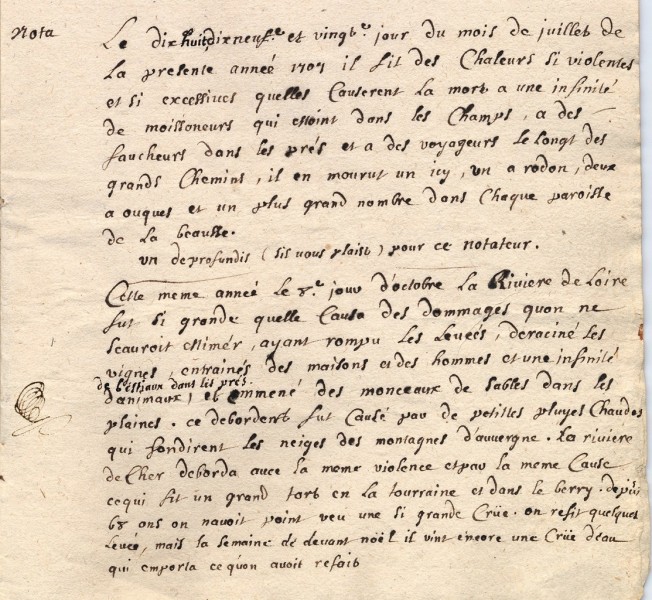 Nota
Le dix huit, dix neuf.e et vingt.e jour du mois de juillet de
la presente anneé 1707 il fit des Chaleurs si violentes
et si excessives quelles Causerent la mort a une infinité
de moissoneurs qui estoint dans les Champs, a des
faucheurs dans les prés et a des voyageurs le longt des
grands Chemins, il en mourut un icy, un a rodon, deux
a ouques et un plus grand nombre dans Chaque paroisse
de la beausse.
un de profundis (sil vous plaist) pour ce notateur.
Cette meme anneé le 8.e jour d'octobre la Riviere de Loire
fut si grande quelle Causa des dommages quon ne
scauroit estimér, ayant rompu les leveés, deraciné les
vignes, entrainés des maisons et des hommes et une infinité
de bestiaux dans les prés.
d'animaux, et emmené des monceaux de sables dans les
plaines. ce debordent fut Causé par de petittes pluyes Chaudes
qui fondirent les neiges des montagnes d'auvergne. La riviere
de Cher deborda avec la meme violence et par la meme Cause
ce qui fit un grand tort en la tourraine et dans le berry. depuis
68 ans on n'avoit point veu une si grande Crüe. on refit quelques
leveés, mais la semaine de devant noël il vint encore une Crüe d'eau
qui emporta ce qu'on avoit refait